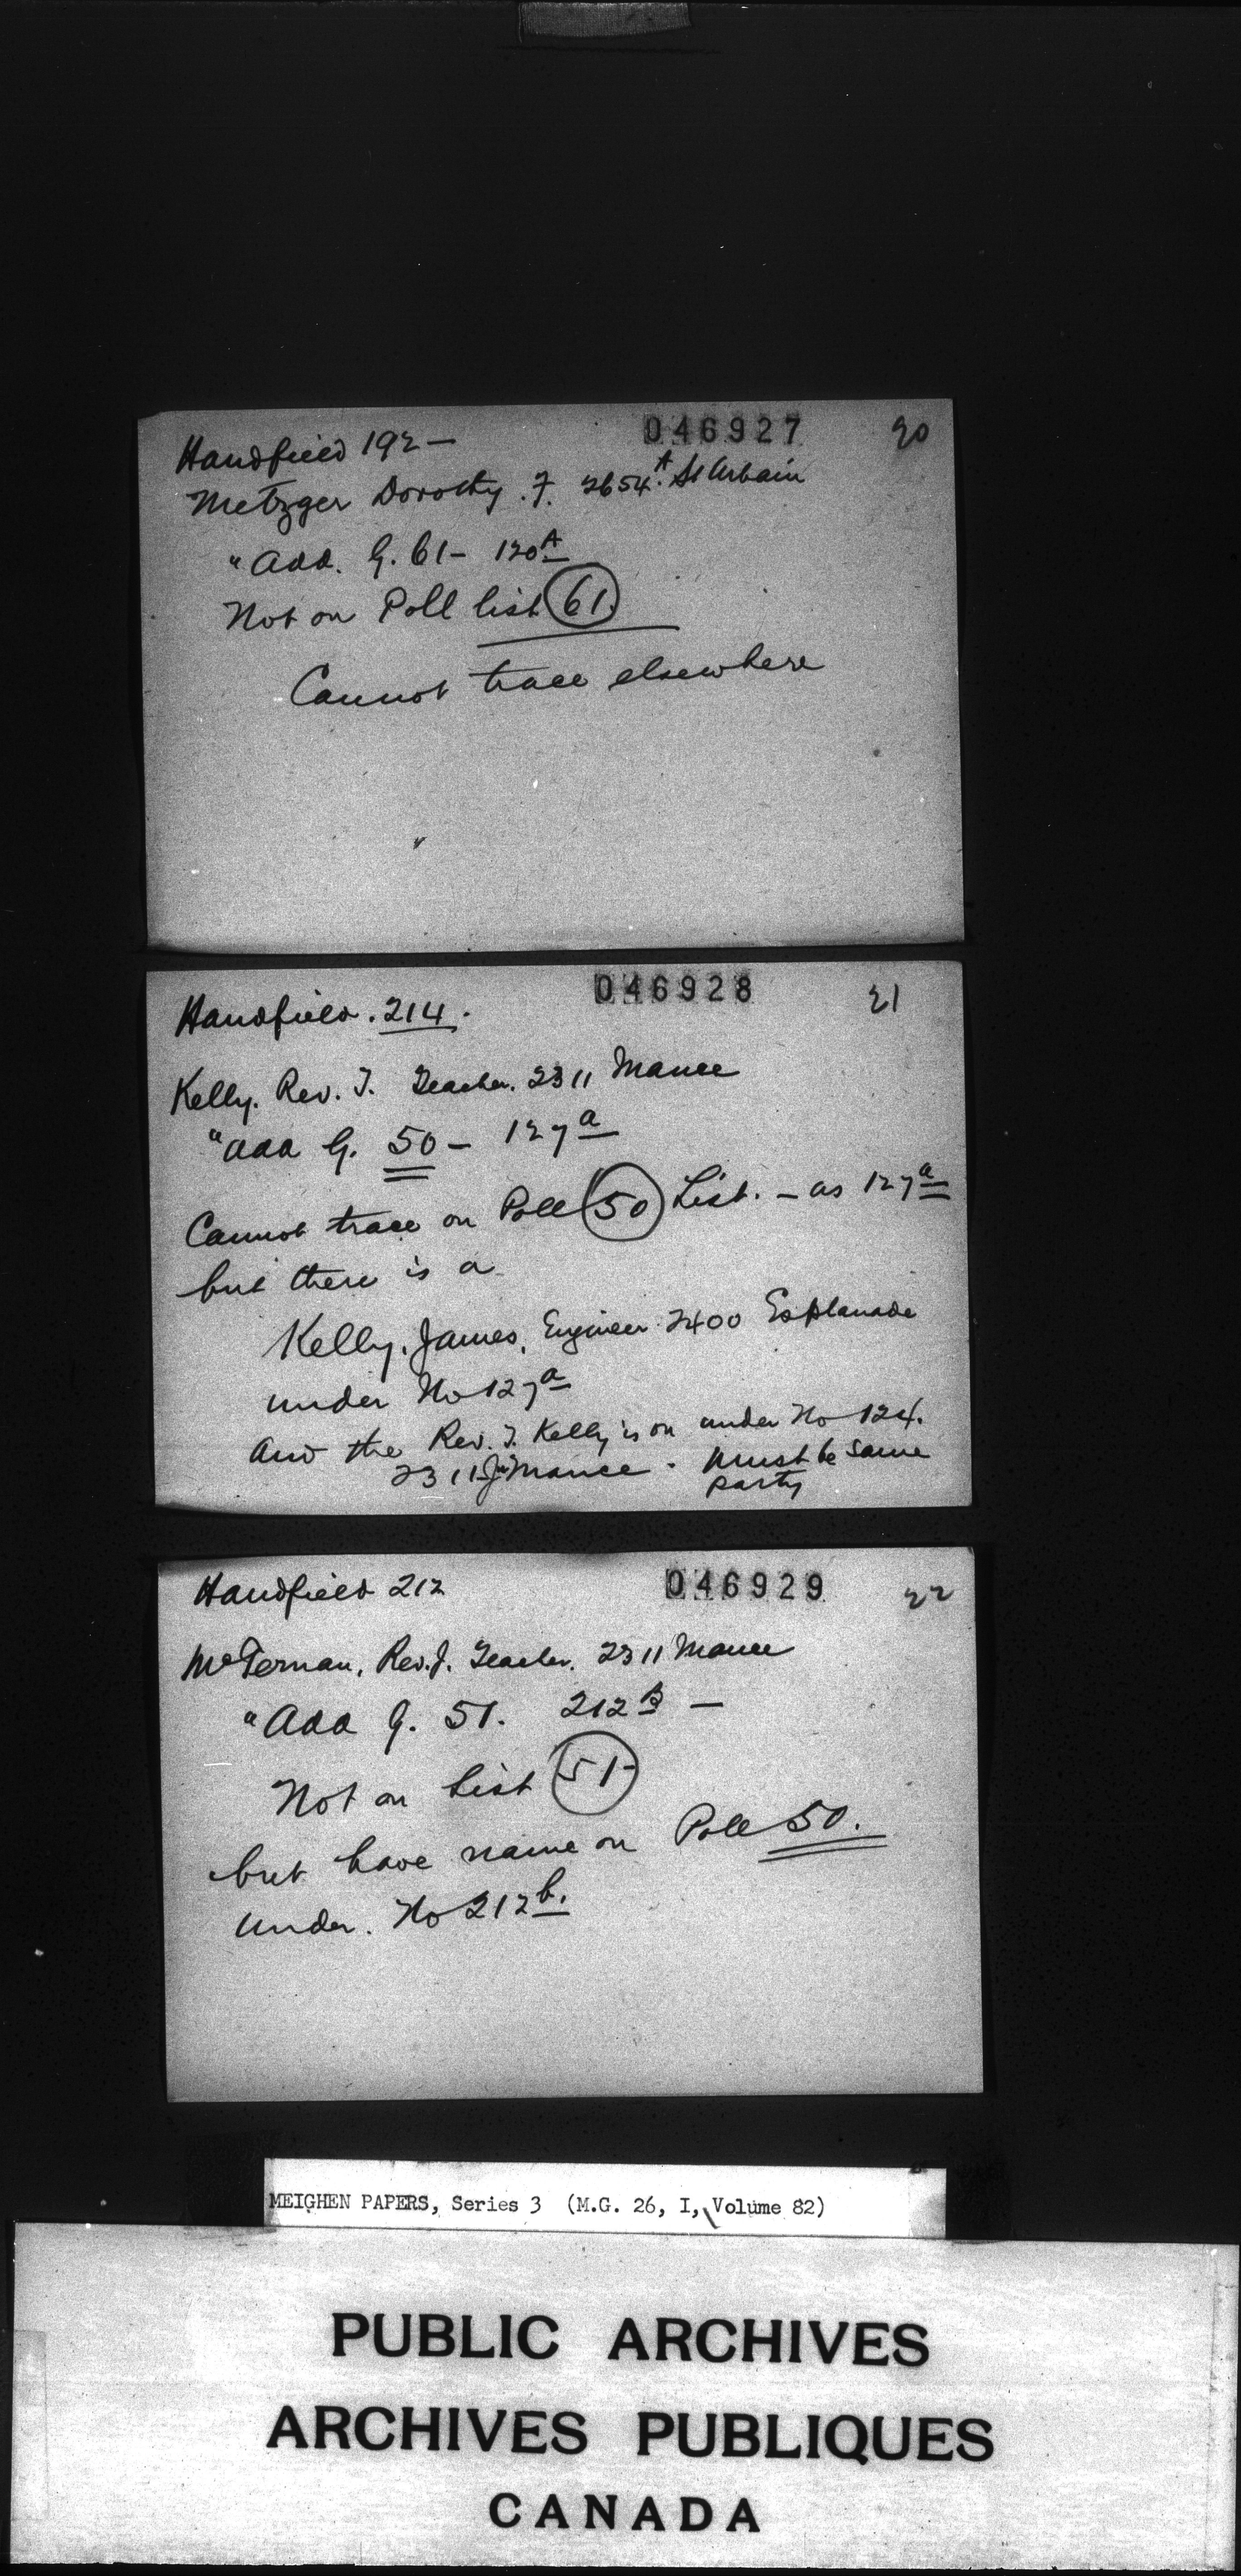 046927
20
Handfield 192 -
Metzger Dorothy. F. 2654.A St Urbain
" Add. G. 61 - 120A
Not on Poll list 61.
Cannot trace elsewhere
046928
21
Handfield. 214.
Kelly. Rev. J. Teacher. 2311 Mance
" Add G. 50 - 127a
Cannot trace on Poll 50 List. - as 127a
but there is a
Kelly, James, Engineer 2400 Esplanade
under No 127a
And the Rev. J. Kelly is on under No 124.
2311 Mance. Must be same
party
046929
22
Handfield 212
McTernan, Rev. J. Teacher. 2311 Mance
" Add G. 51. 212B -
Not on List 51-
but have name on Poll 50.
Under. No 212b.
MEIGHEN PAPERS, Series 3 (M.G. 26, I, Volume 82)
PUBLIC ARCHIVES
ARCHIVES PUBLIQUES
CANADA